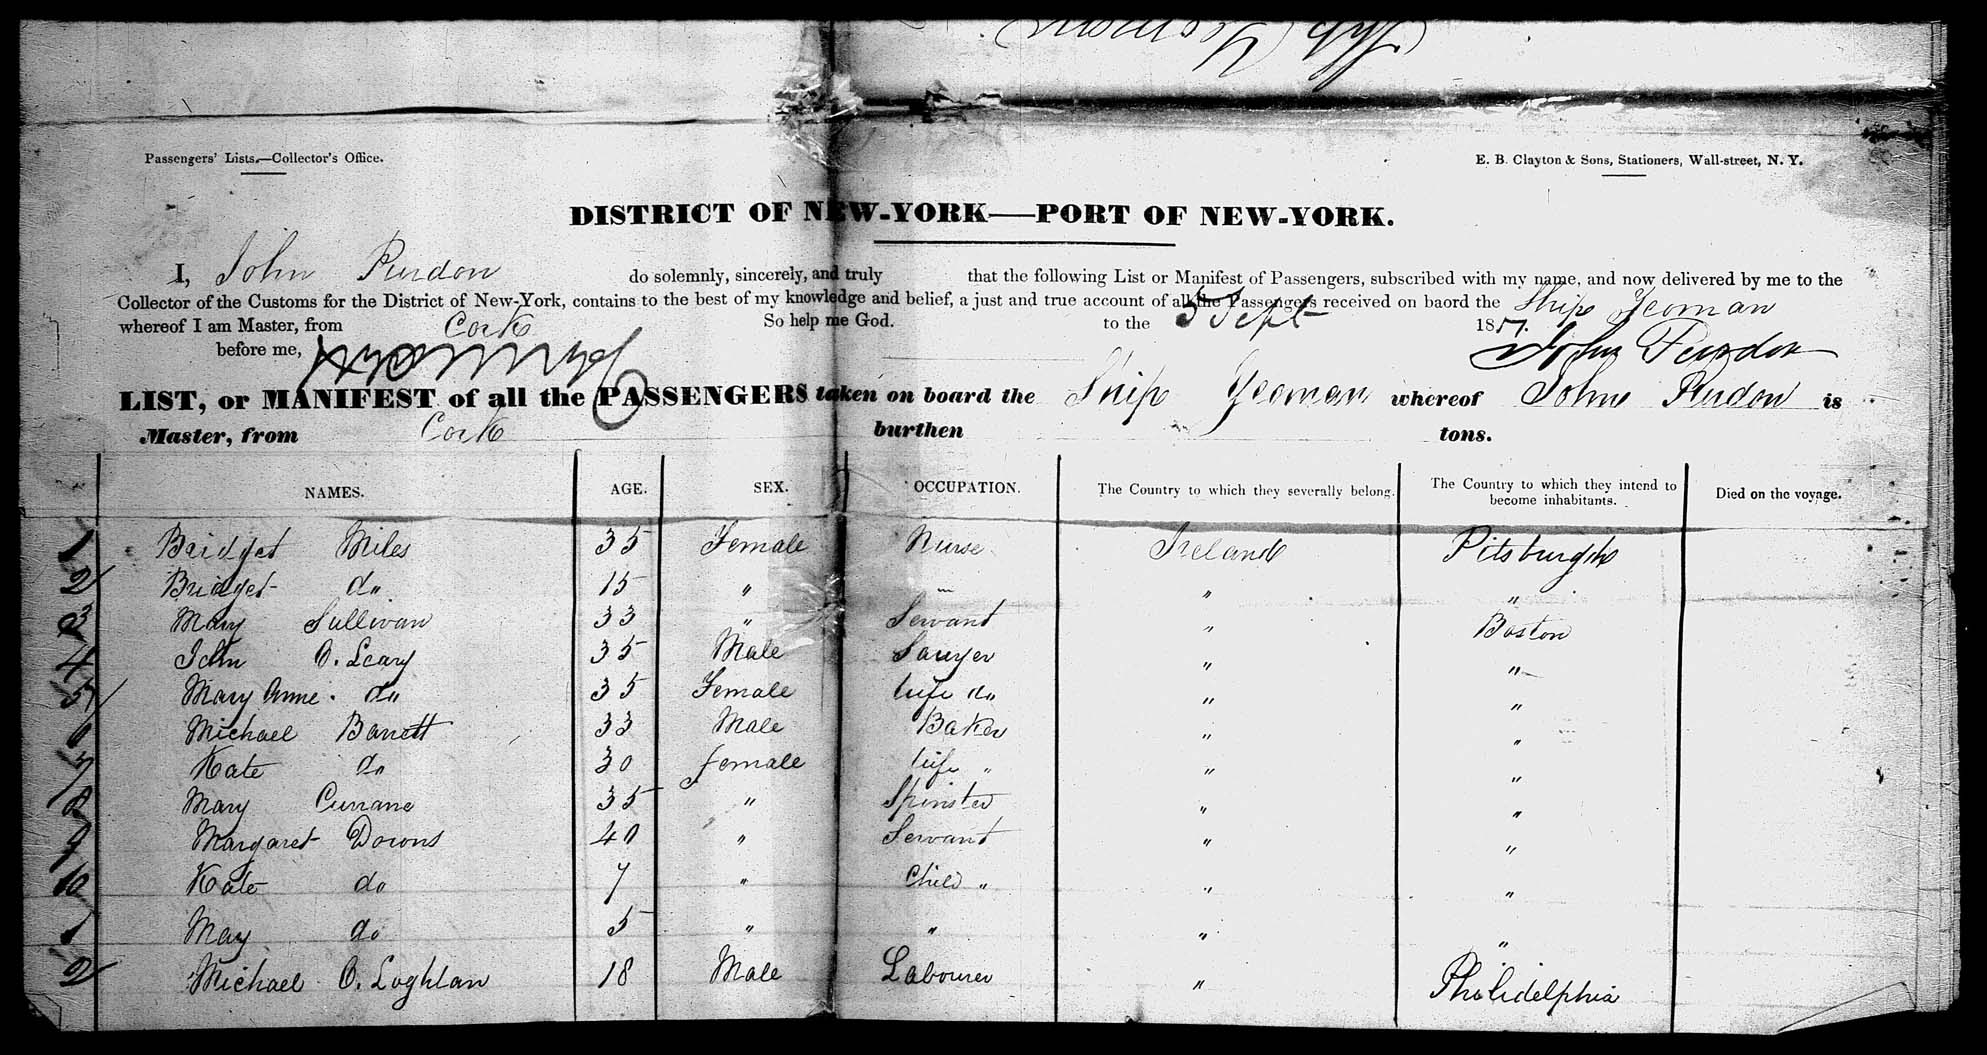 Yeoman
Passengers' Lists.—Collector's Office.
E. B. Clayton & Sons, Stationers, Wall-street, N. Y.
DISTRICT OF NEW-YORK—PORT OF NEW-YORK.
I, John Purdon do solemnly, sincerely, and truly that the following List or Manifest of Passengers, subscribed with my name, and now delivered by me to the
Collector of the Customs for the District of New-York, contains to the best of my knowledge and belief, a just and true account of all the Passengers received on baord the Ship Yeoman
whereof I am Master, from Cork So help me God. to the 5 Sept 1851.
before me, John Purdon
LIST, or MANIFEST of all the PASSENGERS taken on board the Ship Yeoman whereof John Purdon is
Master, from Cork burthen tons.
NAMES. AGE. SEX. OCCUPATION. The Country to which they severally belong. The Country to which they intend to become inhabitants. Died on the voyage.
1 Bridget Miles 35 Female Nurse Ireland Pitsburgh
2 Bridget do 15 " " " "
3 Mary Sullivan 33 " Servant " Boston
4 John O. Leary 35 Male Sawyer " "
5 Mary Anne. do 35 Female Wife do " "
6 Michael Barrett 33 Male Baker " "
7 Kate do 30 female Wife " " "
8 Mary Currane 35 " Spinster " "
9 Margaret Downs 40 " Servant " "
10 Kate do 7 " Child " " "
1 May do 5 " " " "
2 Michael O. Loghlan 18 Male Labourer " Philidelphia